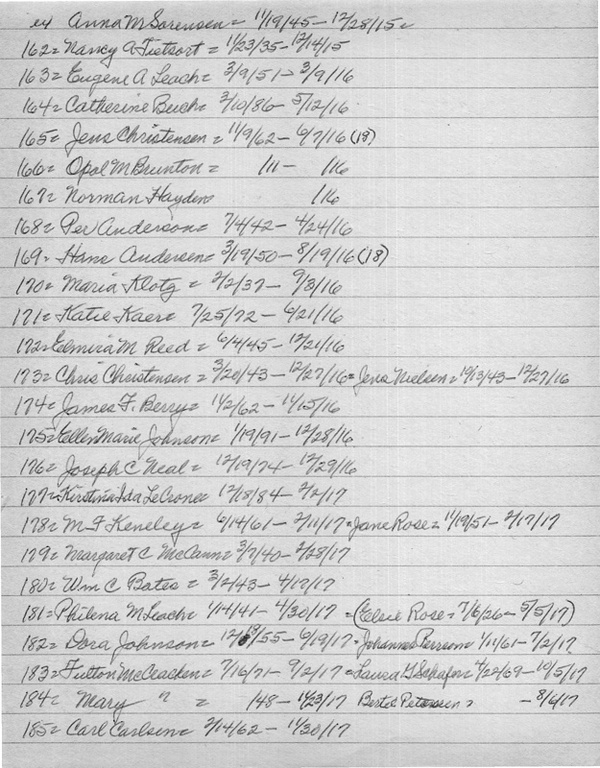 ex Anna M Sorensen = 11/19/45 - 12/28/15 =
162 = Nancy A Tietsort = 11/23/35 - 12/14/15
163 = Eugene A Leach = 3/9/51 - 3/9/16
164 = Catherine Buch = 3/10/86 - 5/12/16
165 = Jens Christensen = 11/9/62 - 6/7/16 (18)
166 = Opal M Brunton = /11 - /16
167 = Norman Hayden /16
168 = Per Anderson = 7/4/42 - 4/24/16
169 = Hans Andersen = 3/19/50 - 8/19/16 (18)
170 = Maria Klotz = 2/2/37 - 9/3/16
171 = Katie Kaer = 7/25/72 - 6/21/16
172 = Elmira M Reed = 6/4/45 - 12/21/16
173 = Chris Christensen = 3/20/43 - 12/27/16 = Jens Nielsen = 10/13/43 - 12/27/16
174 = James F. Berry = 1/2/62 - 11/15/16
175 = Ellen Marie Johnson = 1/19/91 - 12/28/16
176 = Joseph C Neal = 12/19/74 - 12/29/16
177 = Kirstina Ida LeCrone = 12/18/84 - 2/2/17
178 = M F Keneley = 6/14/61 - 2/11/17 = Jane Rose = 11/19/51 - 2/17/17
179 = Margaret C McCann = 3/7/40 - 2/28/17
180 = Wm C Bates = 3/2/43 - 4/17/17
181 = Philena M Leach = 1/14/41 - 4/30/17 = (Elsie Rose = 7/6/26 - 5/5/17)
182 = Dora Johnson = 12/19/55 - 6/19/17 = Johannes Persson = 1/11/61 - 7/2/17
183 = Fulton McCracken = 7/16/71 - 9/2/17 = Laura G Schafer = 4/22/69 - 10/5/17
184 = Mary " = /48 - 11/23/17 Bertel Petersen = - 8/6/17
185 = Carl Carlsen = 2/14/62 - 11/30/17